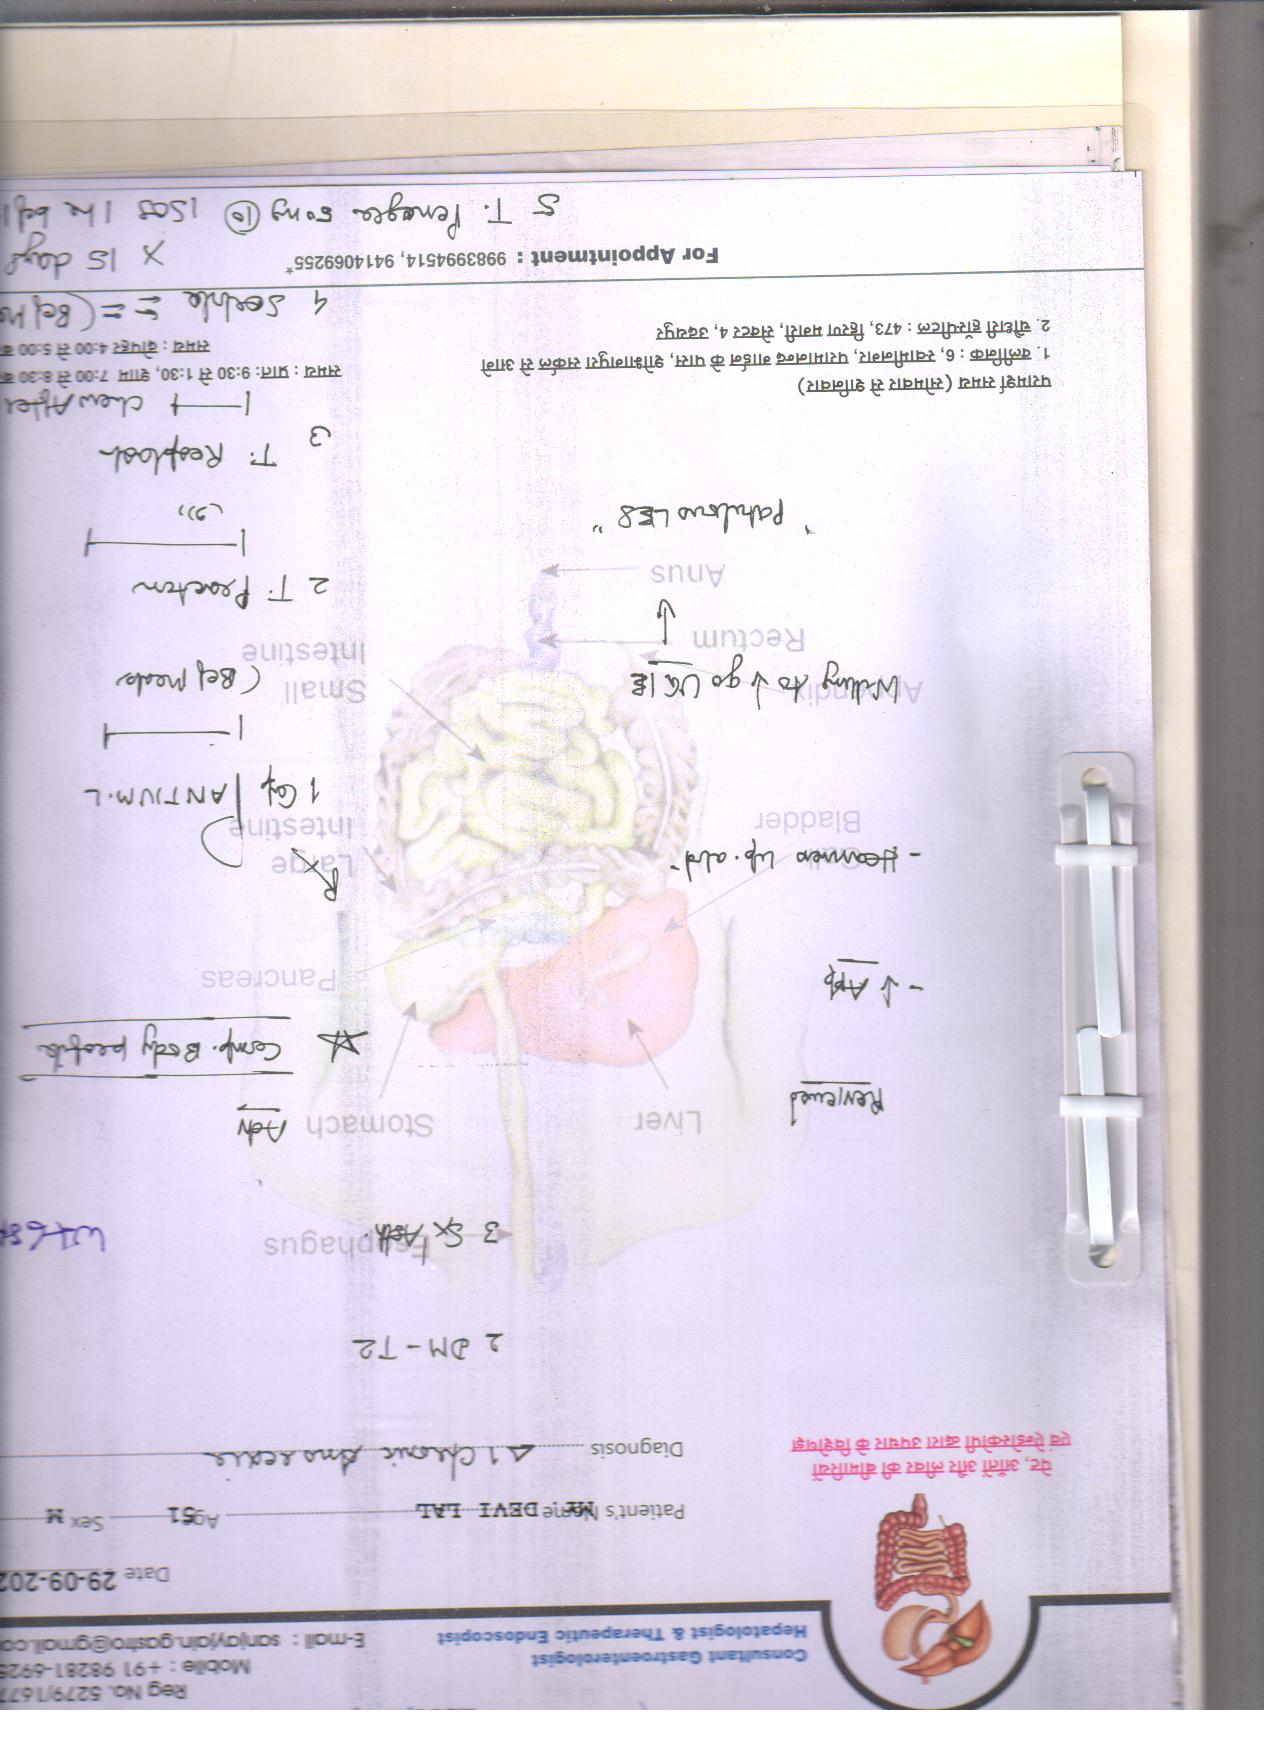 Reg No. 5279/1677
Consultant Gastroenterologist
Mobile : +91 98281-6925
Hepatologist & Therapeutic Endoscopist
E-mail : sanjayjain.gastro@gmail.co
Date 29-09-202
पेट, आँतों और लीवर की बीमारियों
एवं ऐन्डोस्कोपी द्वारा उपचार के विशेषज्ञ
Patient's Name Mr. DEVI LAL Age 51 Sex M
Diagnosis Δ 1 Chronic
2 DM - T2
3
Esophagus
Reviewed
Liver
Stomach
Adv
Comp. Body profile
- ↓ App
Pancreas
Rx
Gall
Bladder
Large
Intestine
1 Cap ANTIUM-L
(Bef meals
Willing to ↓ go UGIE
Appendix
Small
Intestine
Rectum
Anus
2 T.
" Patulous LES "
3 T.
1 — + chew After
परामर्श समय (सोमवार से शनिवार)
1. क्लीनिक : 6, स्वामीनगर, परमानन्द गार्डन के पास, शोभागपुरा सर्कल से आगे
समय : प्रातः 9:30 से 1:30, शाम 7:00 से 8:30 ब
2. चौधरी हॉस्पीटल : 473, हिरण मगरी, सेक्टर 4, उदयपुर
समय : दोपहर 4:00 से 5:00 ब
4
For Appointment : 9983994514, 9414069255*
X 15 days
5 T. 50mg (10) 1SOS 1 hr bef